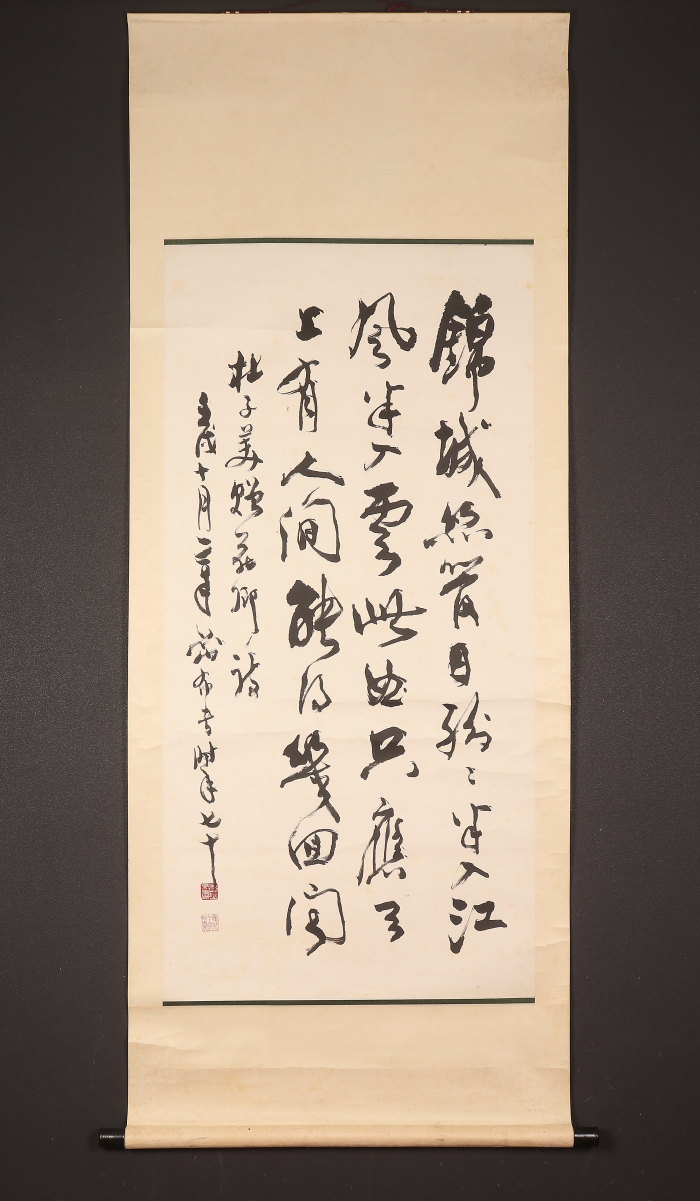 錦城絲管日紛〻半入江
風半入雲此曲只應天
上有人間能得幾回聞
杜子美贈花卿詩
壬戌十月 書時年七十